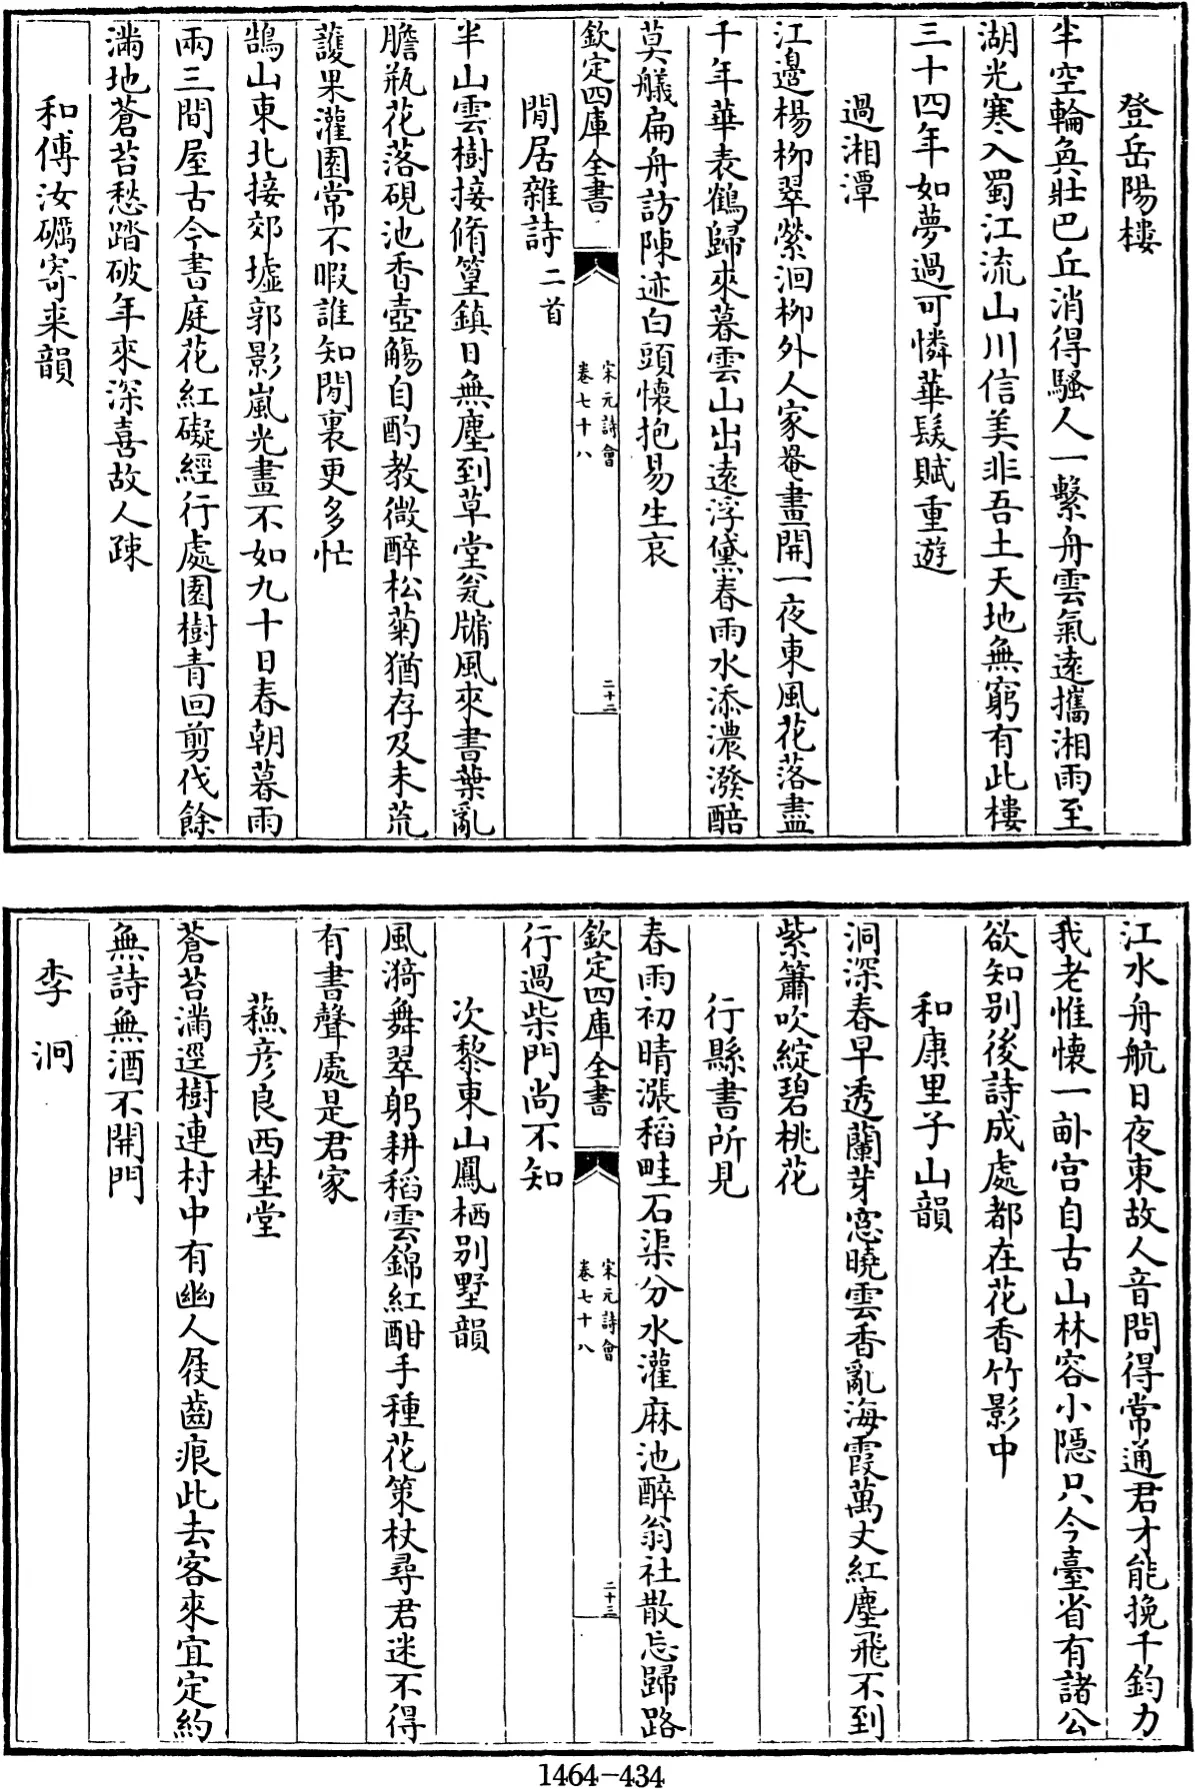 登岳陽樓
半空輪奐壯巴丘消得騷人一繫舟雲氣遠攜湘雨至
湖光寒入蜀江流山川信美非吾土天地無窮有此樓
三十四年如夢過可憐華髮賦重遊
過湘潭
江邊楊栁翠縈洄栁外人家罨畫開一夜東風花落盡
千年華表鶴歸來暮雲山出遠浮黛春雨水添濃潑醅
莫艤扁舟訪陳迹白頭懷抱易生哀
欽定四庫全書
宋元詩會
卷七十八
二十二
閒居雜詩二首
半山雲樹接脩篁鎮日無塵到草堂瓮牖風來書葉亂
膽瓶花落硯池香壺觴自酌教微醉松菊猶存及未荒
護果灌園常不暇誰知閒裏更多忙
鵠山東北接郊墟郭影嵐光畫不如九十日春朝暮雨
兩三間屋古今書庭花紅礙經行處園樹青回剪伐餘
滿地蒼苔愁踏破年來深喜故人疎
和傅汝礪寄来韻
江水舟航日夜東故人音問得常通君才能挽千鈞力
我老惟懷一畝宫自古山林容小隱只今臺省有諸公
欲知别後詩成處都在花香竹影中
和康里子山韻
洞深春早透蘭芽窓曉雲香亂海霞萬丈紅塵飛不到
紫簫吹綻碧桃花
行縣書所見
春雨初晴漲稻畦石渠分水灌麻池醉翁社散忘歸路
欽定四庫全書
宋元詩會
卷七十八
二十三
行過柴門尚不知
次黎東山鳳栖别墅韻
風漪舞翠躬耕稻雲錦紅酣手種花策杖尋君迷不得
有書聲處是君家
蘓彦良西埜堂
蒼苔滿逕樹連村中有幽人屐齒痕此去客來宜定約
無詩無酒不開門
李泂
1464-434